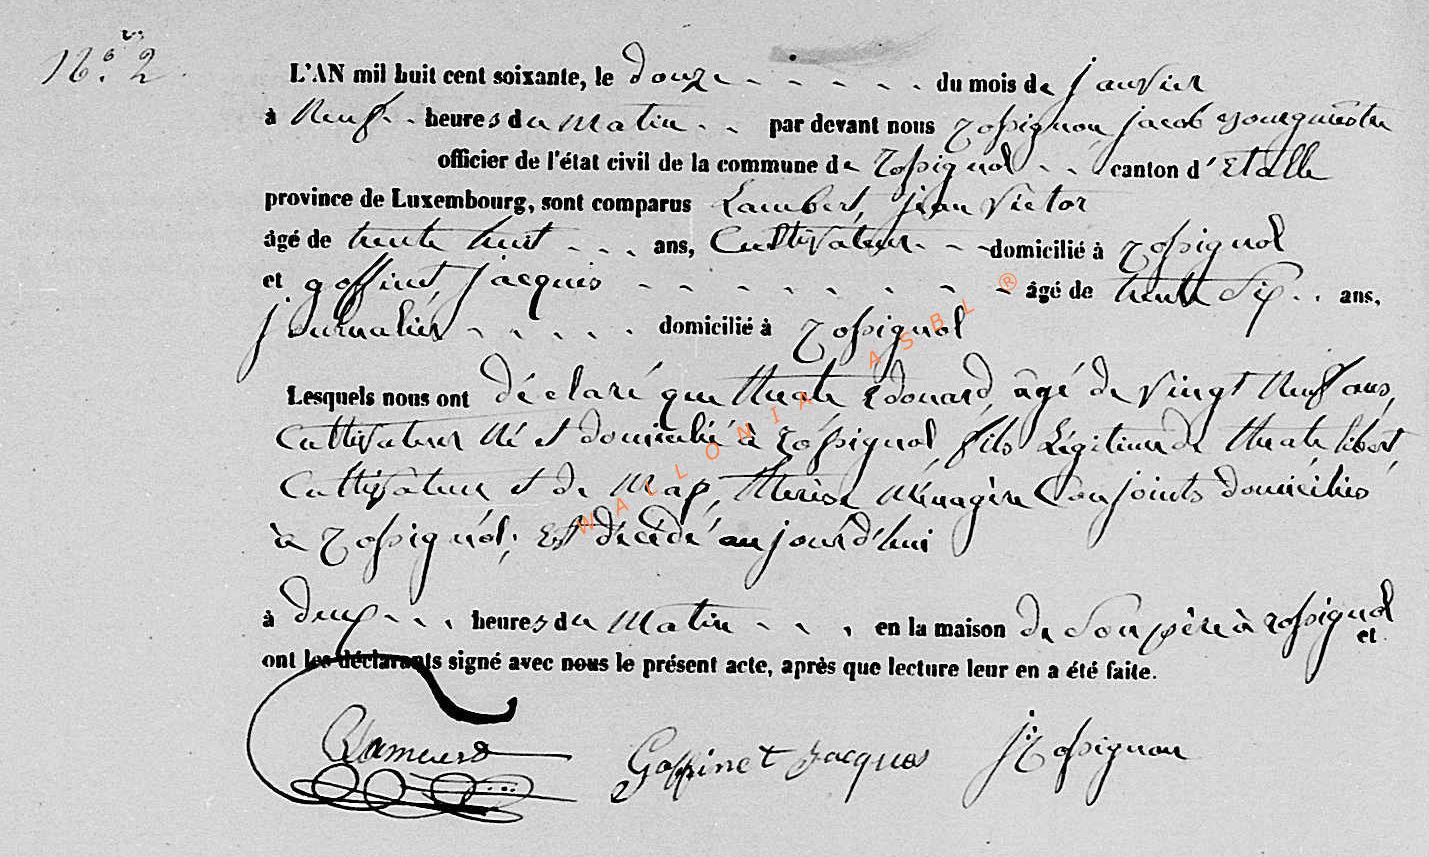 N.º 2.
L'AN mil huit cent soixante, le douze - - - - - du mois de janvier
à Neuf - - heures du Matin - - par devant nous Rossignon jacob Bourgmestre
officier de l'état civil de la commune de Rossignol - - canton d'Etalle
province de Luxembourg, sont comparus Lambert, jean Victor
âgé de trente huit - - - ans, Cultivateur - - - domicilié à Rossignol
et goffinet, jacques - - - - - - - - - âgé de trente Six - - ans,
journalier - - - - - domicilié à Rossignol
Lesquels nous ont déclaré que thiry Édouard, âgé de Vingt Neuf ans,
Cultivateur Né et domicilié à Rossignol, fils Légitime de libert,
Cultivateur et de Thérèse Ménagère Conjoints domiciliés
à Rossignol, Est décédé aujourd'hui
à deux - - - heures du Matin - - - , en la maison de Son père à Rossignol et
ont les déclarants signé avec nous le présent acte, après que lecture leur en a été faite.
Goffinet jacques J Rossignon
WALLONIA ASBL ®